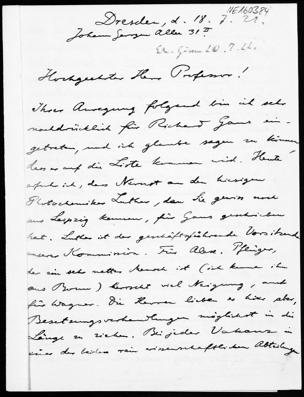 HE160384
Dresden, d. 18. 7. 21.
Johann Georgen Allee 31 II
Hochgeehrter Herr Professor!
Ihrer Anregung folgend bin ich sehr
nachdrücklich für Richard Gans ein-
getreten, und ich glaube sagen zu können,
dass er auf die Liste kommen wird. Heute
erfuhr ich, dass Nernst an den hiesigen
Photochemiker Luther, den Sie gewiss noch
aus Leipzig kennen, für Gans geschrieben
hat. Luther ist der geschäftsführende Vorsitzende
unserer Kommission. Für Alex. Pflüger,
der ein sehr netter Mensch ist (ich kenne ihn
aus Bonn) herrscht viel Neigung, auch
für Wagner. Die Herren lieben es hier aber,
Besetzungsverhandlungen möglichst in die
Länge zu ziehen. Bei jeder Vakanz in
einer der beiden rein wissenschaftlichen Abteilungen